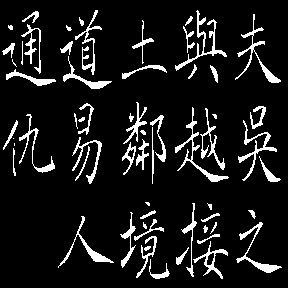 夫吳之
與越接
土鄰境
道易人
通仇